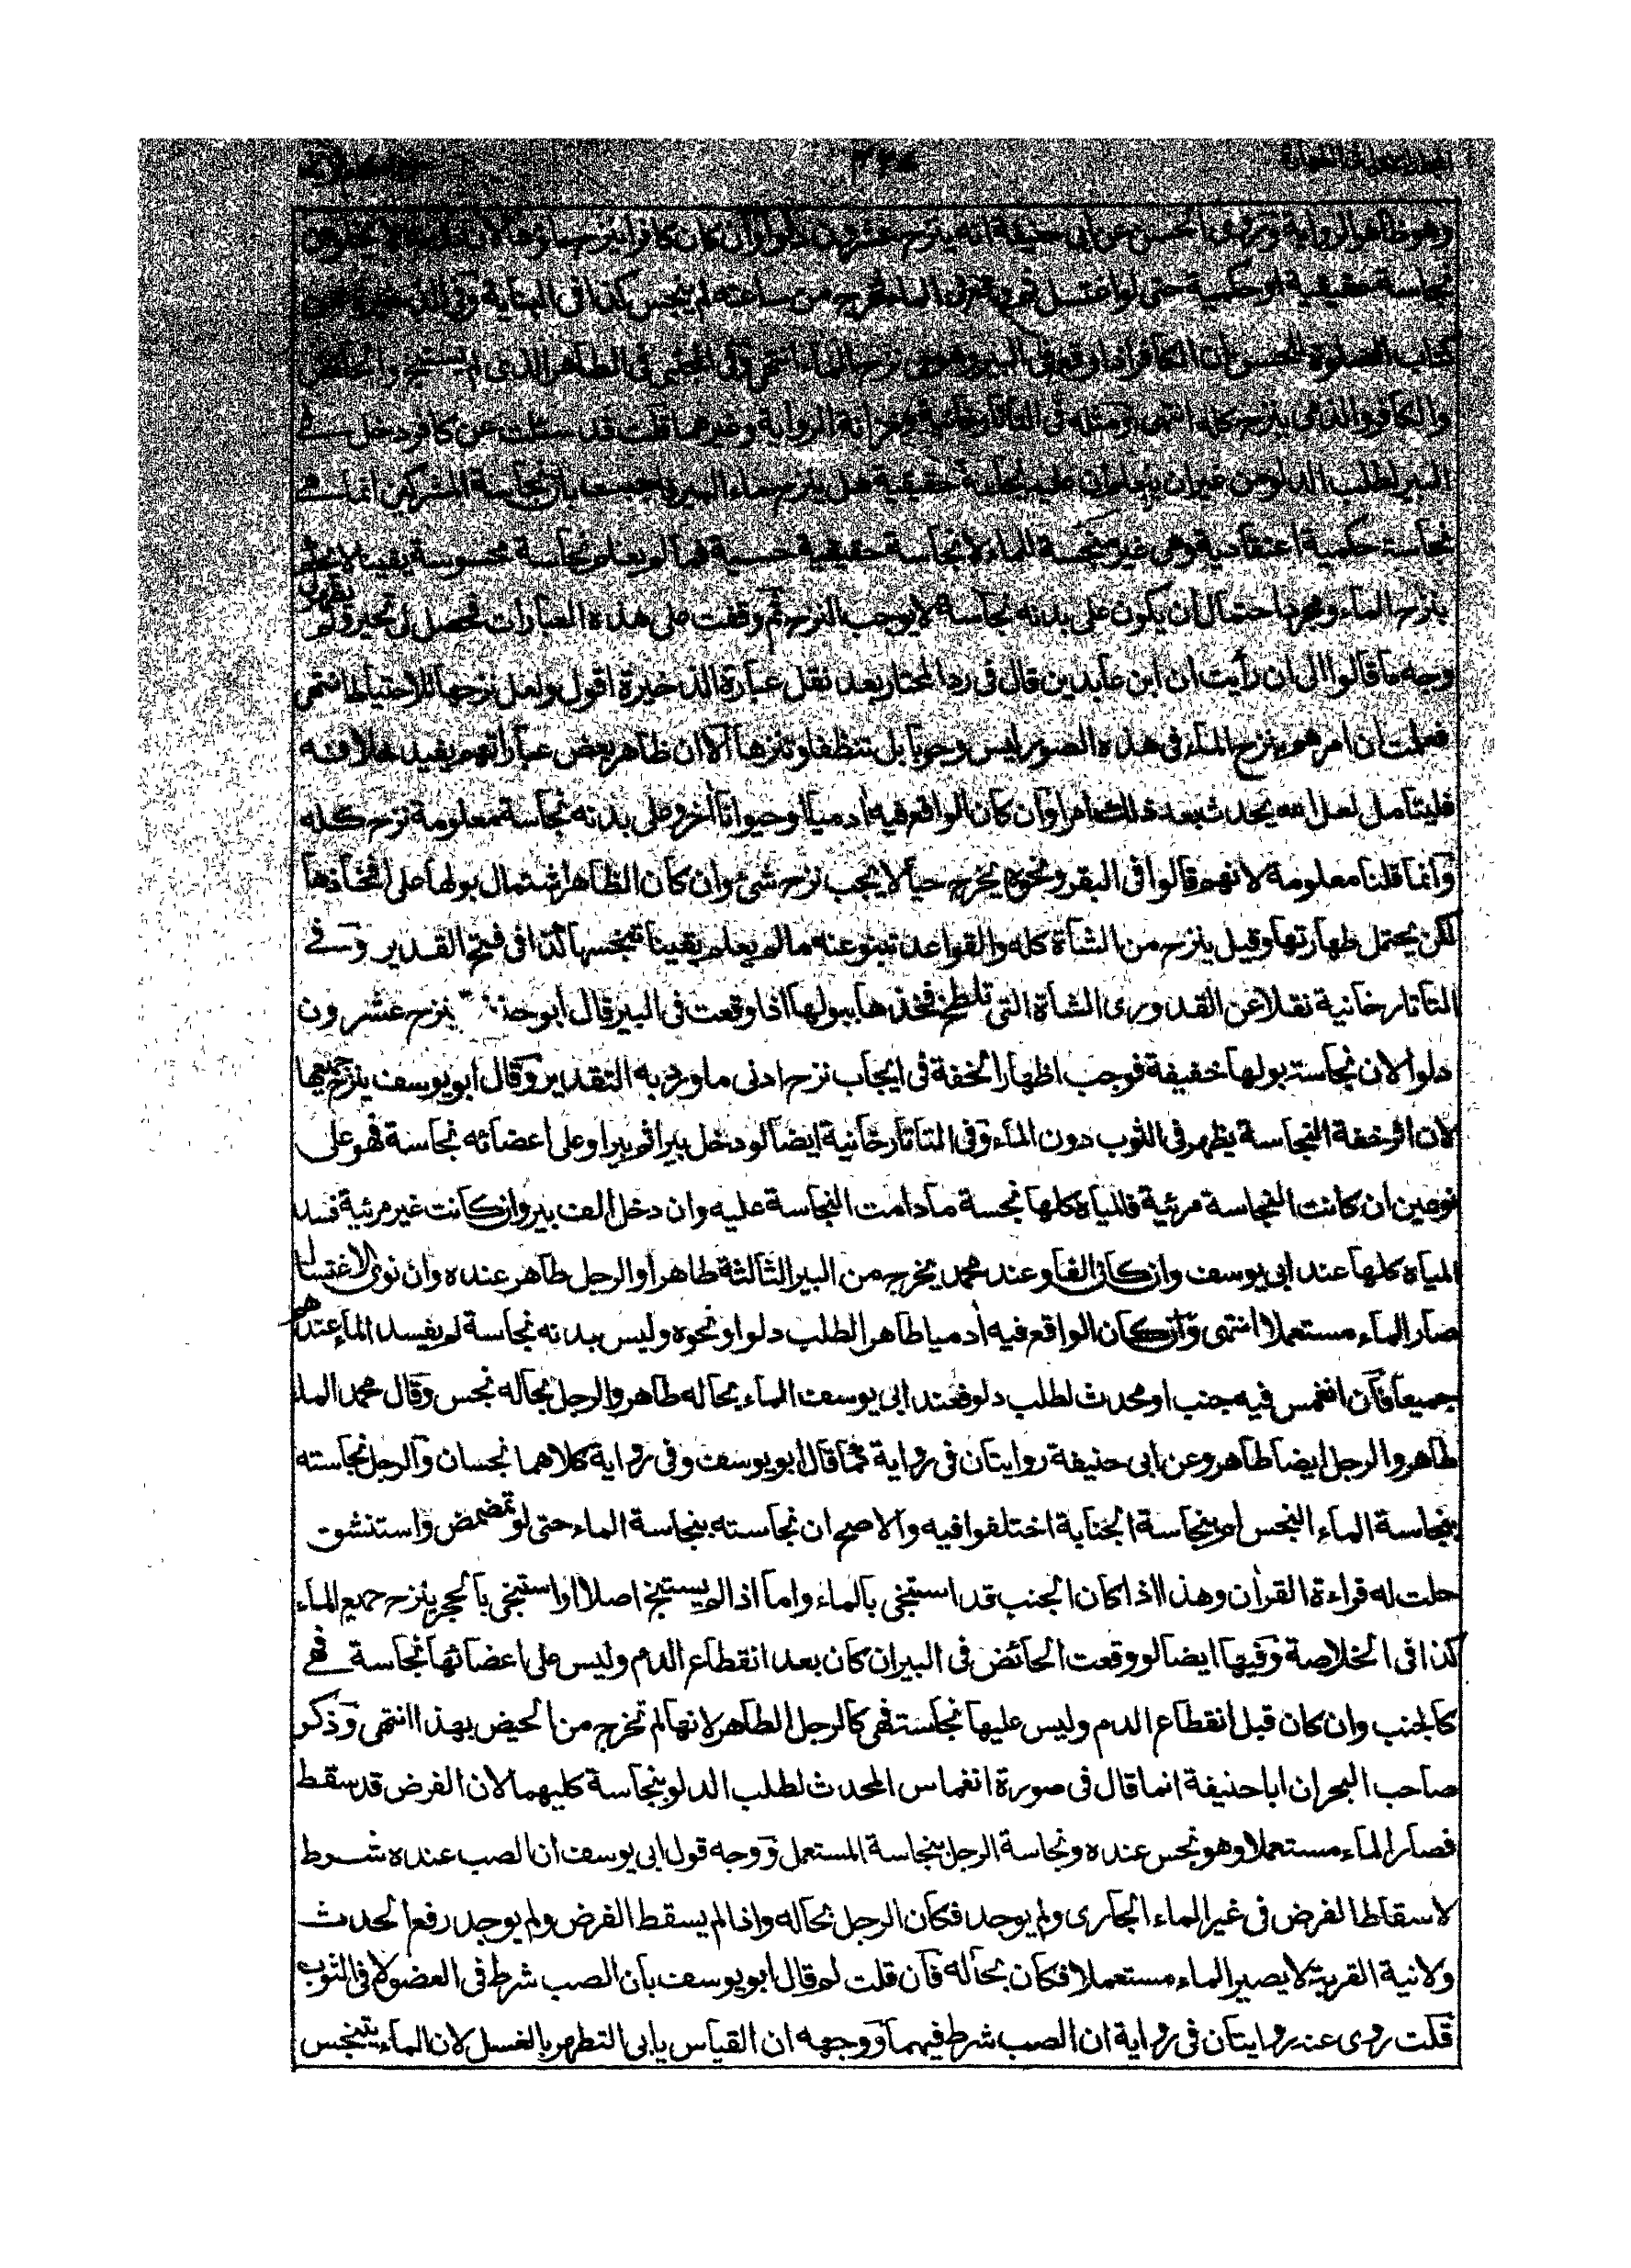 وهو ظاهر الرواية وروى الحسن عن أبي حنيفة انه ينزح عشرون دلوا وان كان كافرا ينزح ماؤها لان بدنه لا يخلو عن
نجاسة حقيقية او حكمية حتى لو اغتسل فى الماء فخرج من ساعته لم ينجس كذا فى البناية وفى الذخيرة عن
كتاب الصلوة للحسن ان الكافر اذا وقع فى البير وهو حى نزح الماء انتهى وفى المجتبى فى الطاهر الذى لم يستنج والحائض
والكافر والذمى ينزح كله انتهى ومثله فى التاتارخانية وخزانة الرواية وغيرهما قلت قد سئلت عن كافر دخل فى
البير لطلب الدلو من غير ان يعلم ان عليه نجاسة حقيقية هل ينزح ماء البير فاجبت بان نجاسة المشركين انما هى
نجاسة حكمية اعتقادية وهى غير منجسة للماء لا نجاسة حقيقية حسية فما لم يعلم نجاسة محسوسة يقينا لا يحكم
بنزح الماء ومجرد احتمال ان يكون على بدنه نجاسة لا يوجب النزح ثم وقفت على هذه العبارات فحصل لى تحير ولم يظهر لى
وجه ما قالوا الى ان رأيت ان ابن عابدين قال فى رد المحتار بعد نقل عبارة الذخيرة اقول ولعل نزحها للاحتياط انتهى
فعلمت ان امرهم بنزح الماء فى هذه الصور ليس وجوبا بل تنظفا وتنزها الا ان ظاهر بعض عباراتهم يفيد خلافه
فليتامل لعل الله يحدث بعد ذلك امرا وان كان الواقع فيه أدميا او حيوانا أخر وعلى بدنه نجاسة معلومة نزح كله
وانما قلنا معلومة لانهم قالوا فى البقر ونحوه يخرج حيا لا يجب نزح شئ وان كان الظاهر اشتمال بولها على افخاذها
لكن يحتمل طهارتها وقيل ينزح من الشاة كله والقواعد تنبو عنه ما لم يعلم يقينا تنجسها كذا فى فتح القدير وفى
التاتارخانية نقلا عن القدورى الشاة التى تلطخ فخذها ببولها اذا وقعت فى البير قال ابو حنيفة ينزح عشرون
دلوا لان نجاسة بولها خفيفة فوجب اظهار الخفة فى ايجاب نزح ادنى ما ورد به التقدير وقال ابو يوسف ينزح جميعها
لان اثر خفة النجاسة يظهر فى الثوب دون الماء وفى التاتارخانية ايضا لو دخل بيرا ثم بيرا وعلى اعضائه نجاسة فهو على
نوعين ان كانت النجاسة مرئية فالمياه كلها نجسة ما دامت النجاسة عليه وان دخل الف بير وان كانت غير مرئية فسد
المياه كلها عند ابى يوسف وان كان الفا وعند محمد يخرج من البير الثالثة طاهرا والرجل طاهر عنده وان نوى الاغتسال
صار الماء مستعملا انتهى وان كان الواقع فيه أدميا طاهرا لطلب دلو او نحوه وليس ببدنه نجاسة لم يفسد الماء عندهم
جميعا فان انغمس فيه جنب او محدث لطلب دلو فعند ابى يوسف الماء بحاله طاهر والرجل بحاله نجس وقال محمد الماء
طاهر والرجل ايضا طاهر وعن ابى حنيفة روايتان فى رواية كما قال ابو يوسف وفى رواية كلاهما نجسان والرجل نجاسته
بنجاسة الماء النجس ام بنجاسة الجنابة اختلفوا فيه والاصح ان نجاسته بنجاسة الماء حتى لو تمضمض واستنشق
حلت له قراءة القرأن وهذا اذا كان الجنب قد استنجى بالماء واما اذا لم يستنج اصلا او استنجى بالحجر ينزح جميع الماء
كذا فى الخلاصة وفيها ايضا لو وقعت الحائض فى البير ان كان بعد انقطاع الدم وليس على اعضائها نجاسة فهى
كالجنب وان كان قبل انقطاع الدم وليس عليها نجاسة فهى كالرجل الطاهر لانها لم تخرج من الحيض بهذا انتهى وذكر
صاحب البحر ان ابا حنيفة انما قال فى صورة انغماس المحدث لطلب الدلو بنجاسة كليهما لان الفرض قد سقط
فصار الماء مستعملا وهو نجس عنده ونجاسة الرجل بنجاسة المستعمل ووجه قول ابى يوسف ان الصب عنده شرط
لاسقاط الفرض فى غير الماء الجارى ولم يوجد فكان الرجل بحاله واذا لم يسقط الفرض ولم يوجد رفع الحدث
ولا نية القربة لا يصير الماء مستعملا فكان بحاله فان قلت لم قال ابو يوسف بان الصب شرط فى العضو لا فى الثوب
قلت روى عنه روايتان فى رواية ان الصب شرط فيهما ووجهه ان القياس يابى التطهر بالغسل لان الماء يتنجس